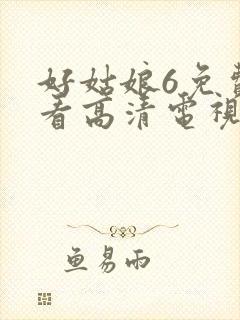 好姑娘6免費
看高清電視
鱼易雨